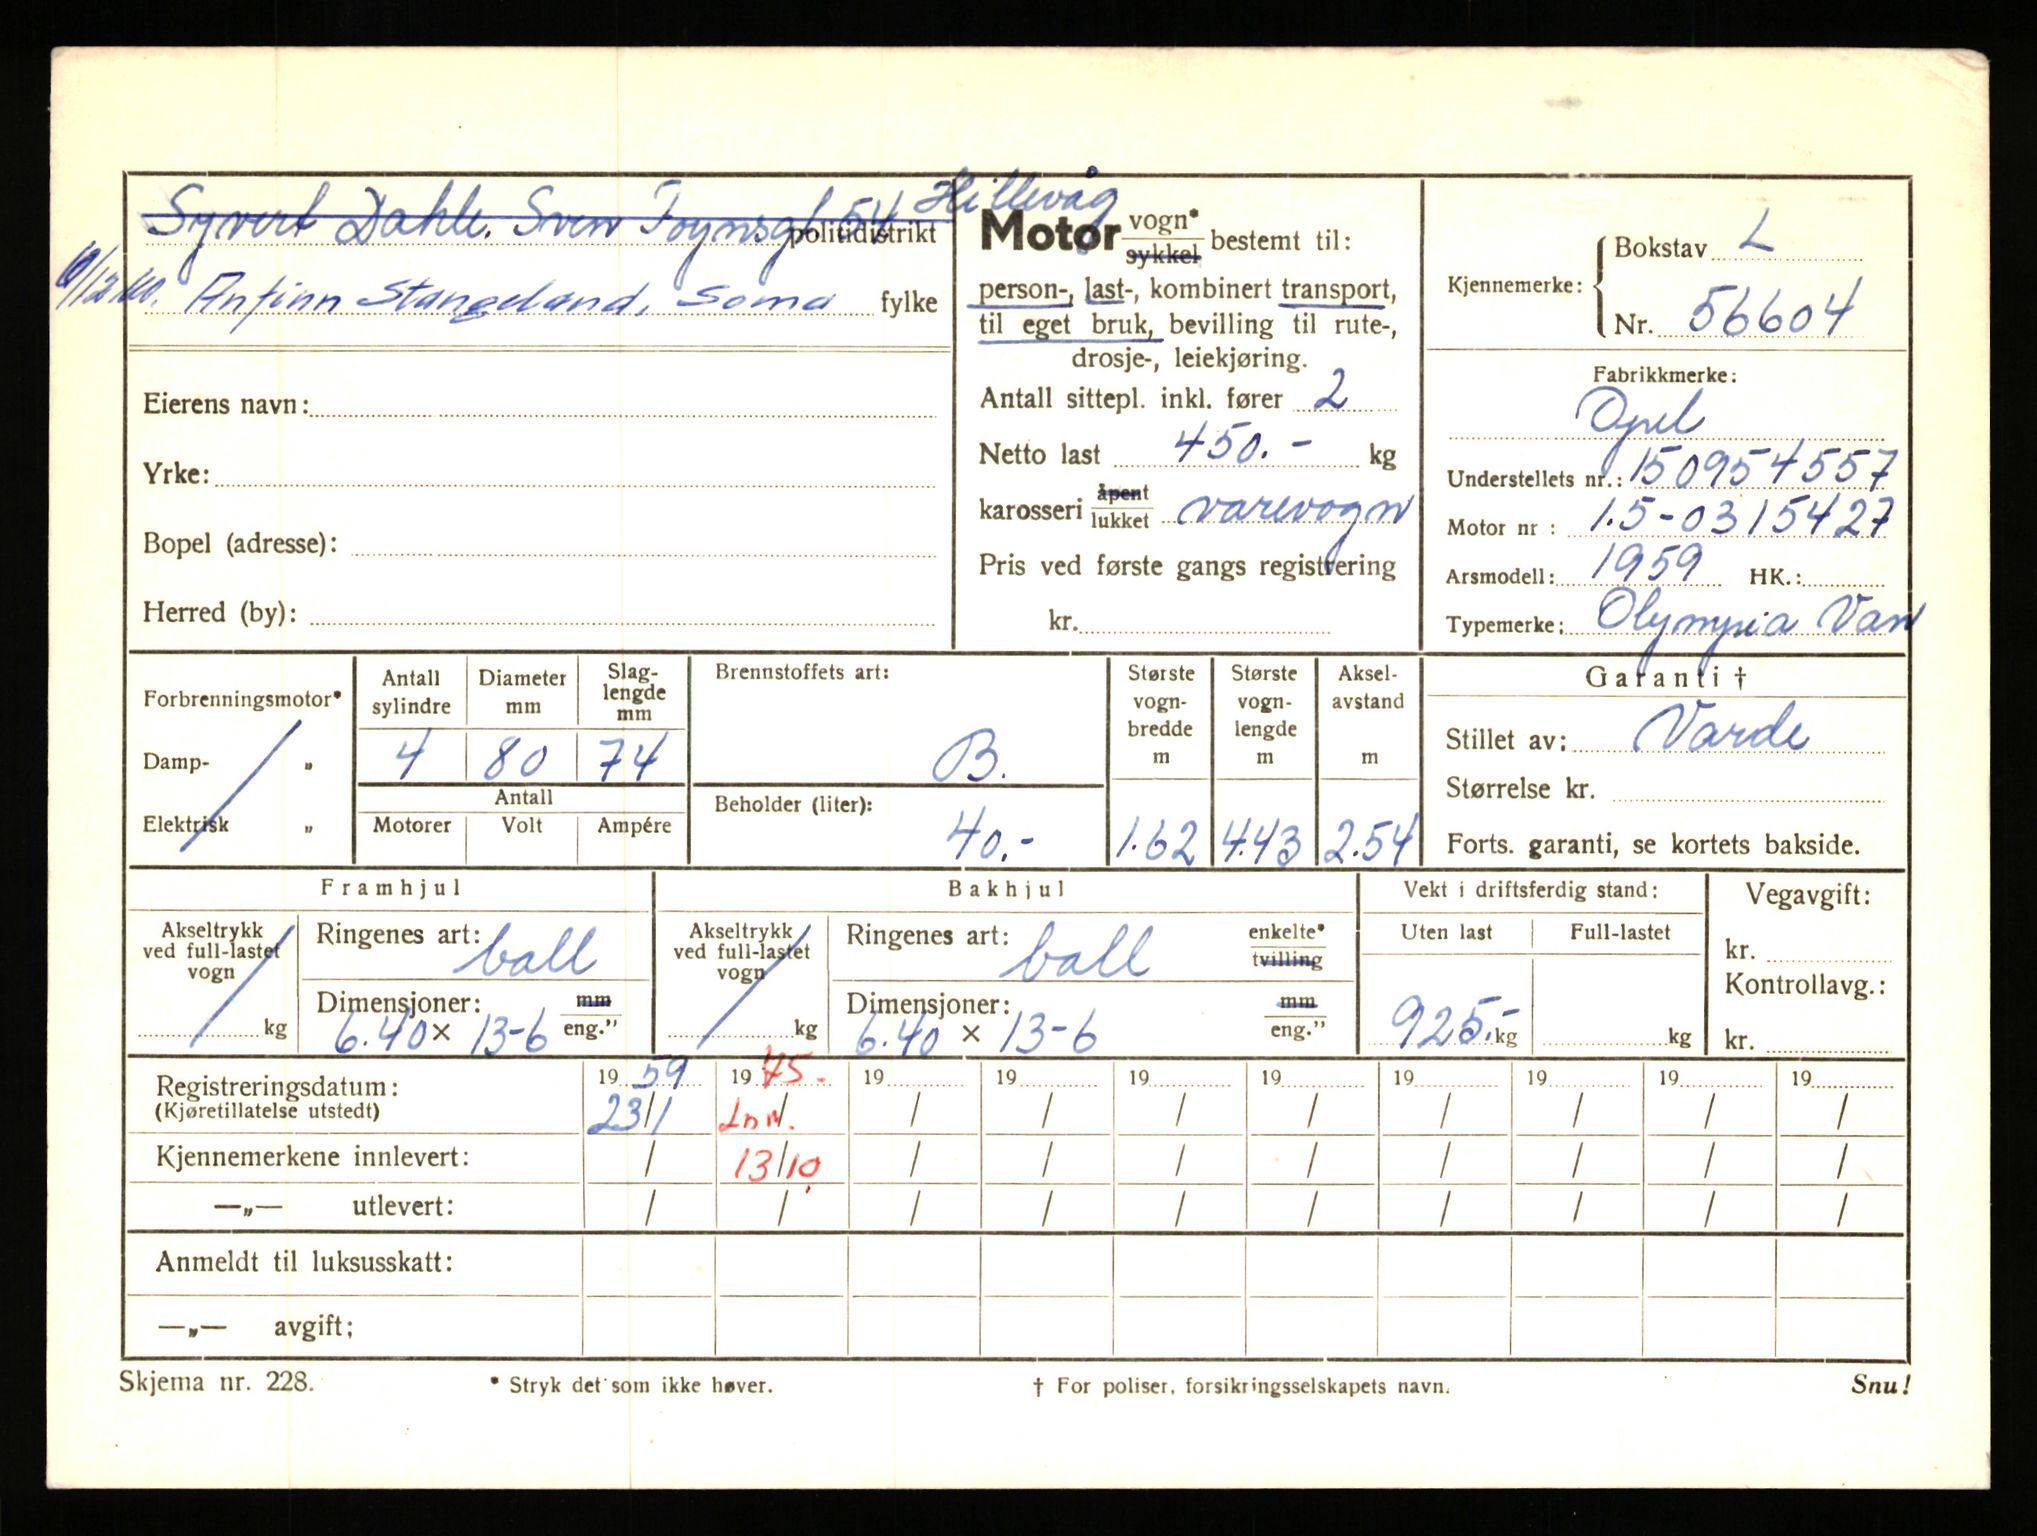 Syvert Dahle. Sven Foynsgt 54 Hillevåg
politidistrikt
Arfinn Stangeland, Soma fylke
Eierens navn:
Yrke:
Bopel (adresse):
Herred (by):
Motor vogn* sykkel bestemt til:
person-, last-, kombinert transport,
til eget bruk, bevilling til rute-,
drosje-, leiekjøring.
Antall sittepl. inkl. fører 2
Netto last 450.- kg
karosseri åpent lukket varevogn
Pris ved første gangs registrering
kr.
Kjennemerke: Bokstav L
Nr. 56604
Fabrikkmerke:
Opel
Understellets nr.: 150954557
Motor nr : 1.5-0315427
Arsmodell: 1959 HK.:
Typemerke: Olympia Van
Forbrenningsmotor*
Damp- „
Elektrisk „
Antall sylindre Diameter mm Slag-lengde mm
4 80 74
Antall
Motorer Volt Ampére
Brennstoffets art:
B.
Beholder (liter):
40.-
Største vogn-bredde m
1.62
Største vogn-lengde m
4.43
Aksel-avstand m
2.54
Garanti †
Stillet av: Varde
Størrelse kr.
Forts. garanti, se kortets bakside.
Framhjul
Akseltrykk ved full-lastet vogn
kg
Ringenes art: ball
Dimensjoner: mm
6.40 x 13-6 eng.”
Bakhjul
Akseltrykk ved full-lastet vogn
kg
Ringenes art: ball enkelte* tvilling
Dimensjoner: mm
6.40 x 13-6 eng.”
Vekt i driftsferdig stand:
Uten last Full-lastet
925.- kg kg
Vegavgift:
kr.
Kontrollavg.:
kr.
Registreringsdatum: 19 59 19 75. 19 19 19 19 19 19 19 19
(Kjøretillatelse utstedt) 23/1 Inn. / / / / / / / /
Kjennemerkene innlevert: / 13/10 / / / / / / / /
—„— utlevert: / / / / / / / / / /
Anmeldt til luksusskatt:
—„— avgift;
Skjema nr. 228. * Stryk det som ikke høver. † For poliser, forsikringsselskapets navn. Snu!